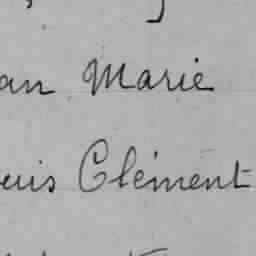 an Marie
uis Clément